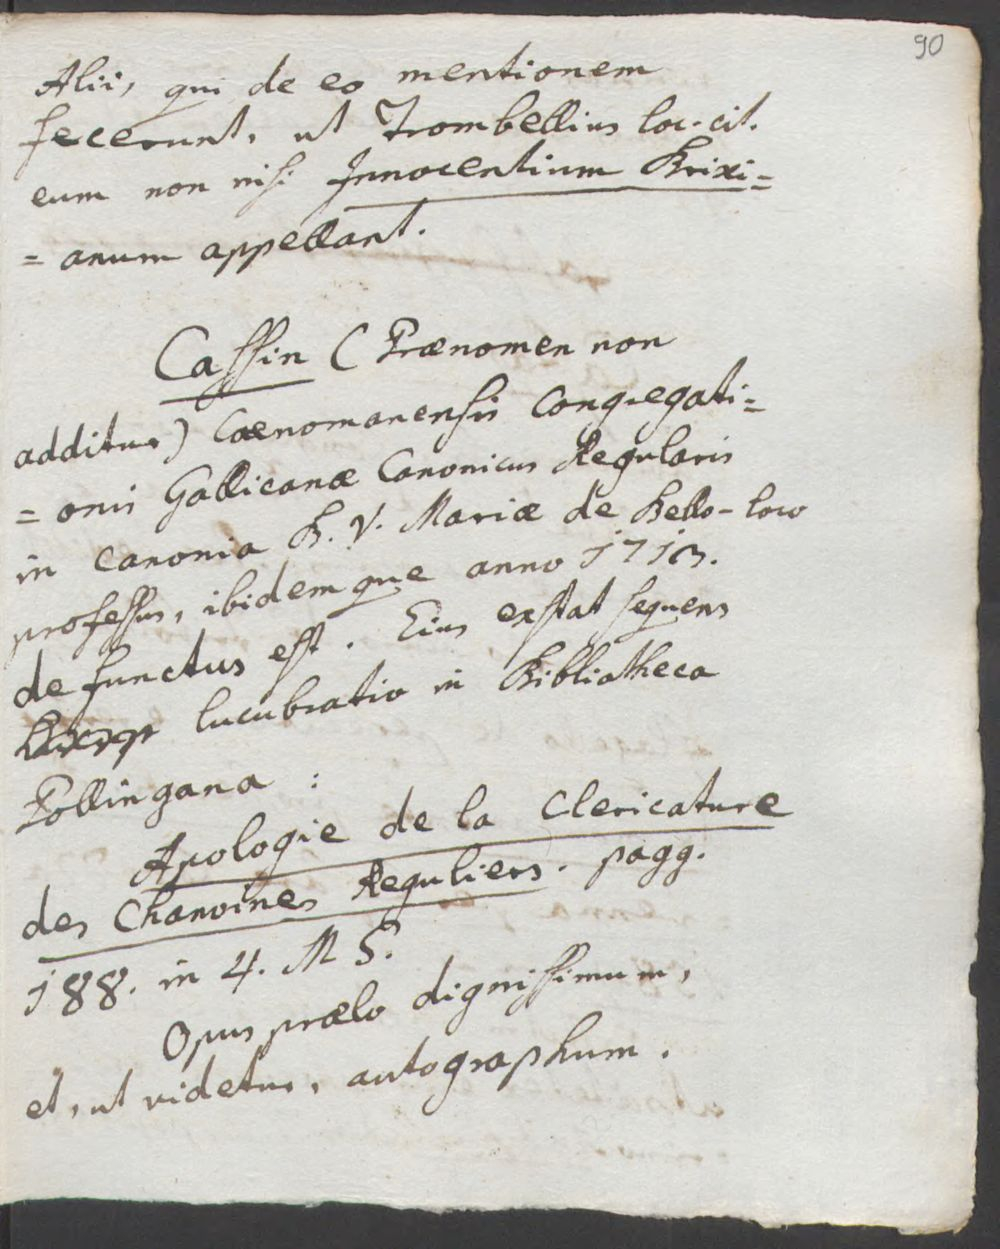 90
Alii, qui de eo mentionem
fecerunt, ut Trombellius loc. cit.
eum non nisi Innocentium Brixi=
= anum appellant.
Cassin (Prænomen non
additur) Cœnomanensis Congregati=
= onis Gallicanæ Canonicus Regularis
in canonia B. V. Mariæ de Bello-loco
professus, ibidemque anno 1713.
defunctus est. Eius exstat sequens
lucubratio in Bibliotheca
Pollingana :
Apologie de la Clericature
des Chanoines Reguliers. pagg.
188. in 4. M S.
Opus prælo dignissimum,
et, ut videtur, autographum.